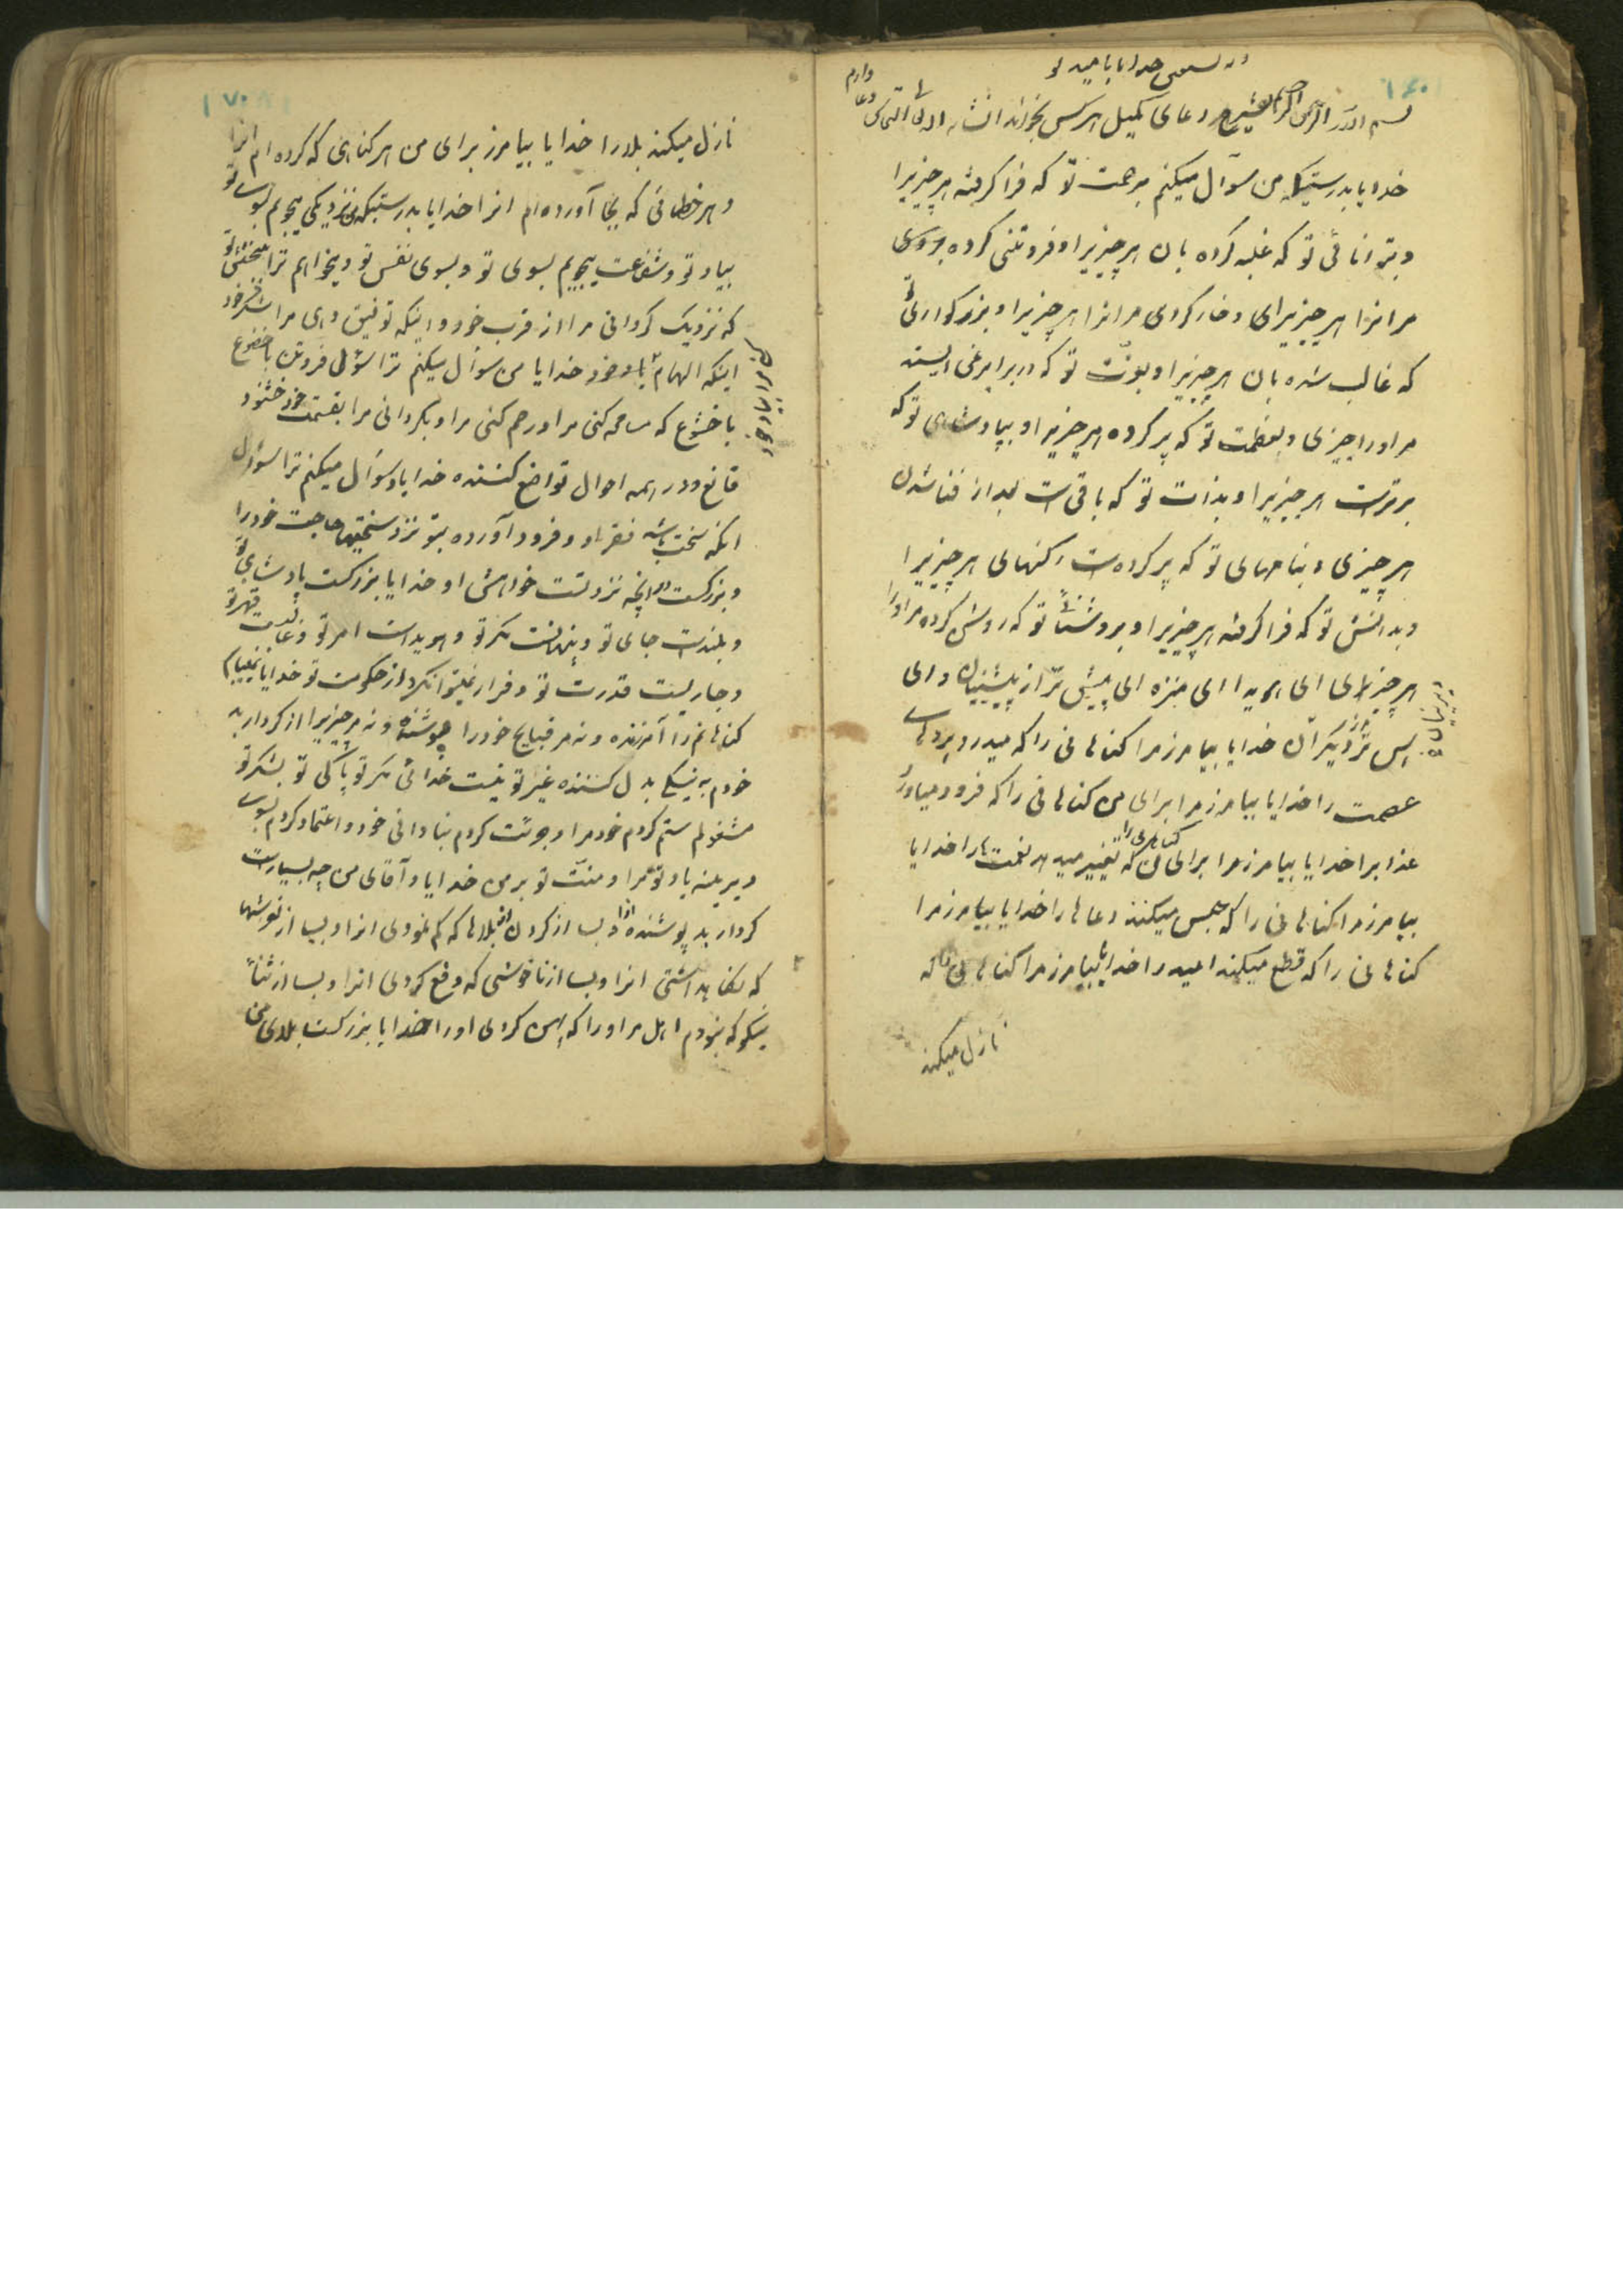 خدایا بامید تو
بسم الله الرحمن الرحیم دعای کمیل هر کس بخواند انشاء الله التماس دعا دارم
خدایا بدرستیکه من سؤال میکنم برحمت تو که فرا کرفته هر چیزیرا
و بتوانائی تو که غلبه کرده بان هر چیزیرا و فروتنی کرده
مر انرا هر چیزیرای و خار کردی مر انرا هر چیزیرا و بزرکواری تو
که غالب شده بان هر چیزیرا و بعزت تو که در برابر نمی ایستد
مر اورا چیزی و بعظمت تو که پر کرده هر چیزیرا و بپادشاهی تو که
برترست هر چیزیرا و بذات تو که باقی ست بعد از فنا شدن
هر چیزی و بنامهای تو که پر کرده ست رکنهای هر چیزیرا
و بدانش تو که فرا کرفته هر چیزیرا و بروشنائی تو که روشن کرده مر اورا
هر چیزی ای هویدا ای منزه ای پیش تر از پیشینیان و ای
پس تر از دیکران خدایا بیامرز مرا کناهانی را که میدرد پردهای
عصمت را خدایا بیامرز مرا برای من کناهانی را که فرود میاورد
عذابرا خدایا بیامرز مرا برای من کناهانی را که تغییر میدهد نعمت را خدایا
بیامرز مرا کناهانی را که حبس میکنند دعاها را خدایا بیامرز مرا
کناهانی را که قطع میکند امید را خدایا بیامرز مرا کناهانی را که
نازل میکند
۱۷۰
نازل میکند بلا را خدایا بیامرز برای من هر کناهی که کرده ام انرا
و هر خطائی که بجا آورده ام انرا خدایا بدرستیکه من نزدیکی میجویم بسوی تو
بیاد تو و شفاعت میجویم بسوی تو و بسوی نفس تو و میخواهم ترا ببخشش تو
که نزدیک کردانی مرا از قرب خود و اینکه توفیق دهی مرا شکر خود
اینکه الهام یاد خود خدایا من سؤال میکنم ترا سؤال فروتن با خضوع
با خشوع که مسامحه کنی مرا و رحم کنی مرا و بکردانی مرا بقسمت خود خشنود
قانع و در همه احوال تواضع کننده خدایا و سؤال میکنم ترا سؤال
انکه سخت باشد فقر او و فرود آورده بتو نزد سختیها حاجت خود را
و بزرکست در انچه نزد تست خواهش او خدایا بزرکست پادشاهی تو
و بلندست جای تو و پنهانست مکر تو و هویداست امر تو و غالبست قهر تو
و جاریست قدرت تو و فرار نمیتوان کرد از حکومت تو خدایا نمییابم
کناهانم را آمرزنده و نه مر قبایح خود را پوشنده و نه مر چیزیرا از کردار بد
خودم به نیکی بدل کننده غیر تو نیست خدائی مکر تو پاکی تو بشکر تو
مشغولم ستم کردم خودم را و جرئت کردم بنادانی خود و اعتماد کردم بسوی
دیرینه یاد تو مرا و منت تو بر من خدایا و آقای من چه بسیارست
کردار بد پوشنده انرا و بسا از کردن بلاها که کم نمودی انرا و بسا از لغزشها
که نکاهداشتی انرا و بسا از ناخوشی که دفع کردی انرا و بسا از ثناء
نیکو که نبودم اهل مر اورا که پهن کردی اورا خدایا بزرکست بلای من